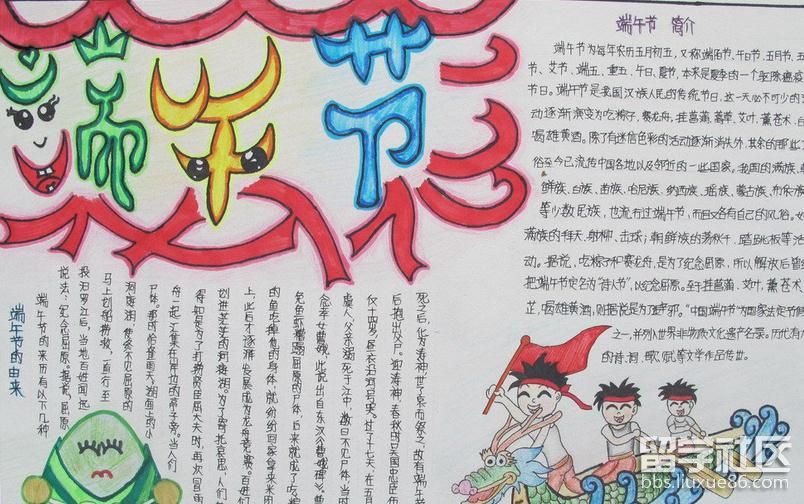 端午节
端午节 简介
端午节为每年农历五月初五,又称端阳节、午日节、五月节、五
节、艾节、端五、重五、午日、夏节,本来是夏季的一个驱除瘟疫
节日。端午节是我国汉族人民的传统节日,这一天必不可少的
动逐渐演变为吃粽子,赛龙舟,挂菖蒲、蒿草、艾叶,薰苍术、白
喝雄黄酒。除了有迷信色彩的活动逐渐消失外,其余的那些
俗至今已流传中国各地以及邻近的一些国家。我国的满族、
鲜族、白族、苗族、哈尼族、纳西族、瑶族、蒙古族、布依族
等少数民族,也流行过端午节,而且各有自己的风俗。
满族的拜天、射柳、击球;朝鲜族的荡秋千、踏跳板等活
动。据说,吃粽子和赛龙舟,是为了纪念屈原,所以解放后曾
把端午节定名为“诗人节”,以纪念屈原。至于挂菖蒲、艾叶,薰苍术
芷,喝雄黄酒,则据说是为了辟邪。“中国端午节”为国家法定节假
之一,并列入世界非物质文化遗产名录。历代有
的诗、词、歌、赋等文学作品传世。
端午节的由来
端午节的来历有以下几种
说法:纪念屈原。据说,屈原
投汨罗江后,当地百姓闻讯
马上划船捞救,一直行至
洞庭湖,
尸体。那时恰逢雨天,湖面上的小
舟一起汇集在岸边的亭子旁。当人们
得知是为了打捞贤臣屈大夫时,再次冒雨
创进茫茫的洞庭湖。为了寄托哀思,人们
上,此后才逐渐发展成为龙舟竞赛。百姓们
的鱼吃掉他的身体,就纷纷回家拿来米
免鱼虾糟蹋屈原的尸体,后来就成了吃
念孝女曹娥,此说出自东汉
虞人,父亲溺死于江中,数日不见尸体,当时
仅十四岁,
后抱出父尸。
死之后,化为涛神,世人哀而祭之,故有端午
留学社区
bbs.liuxue86.com